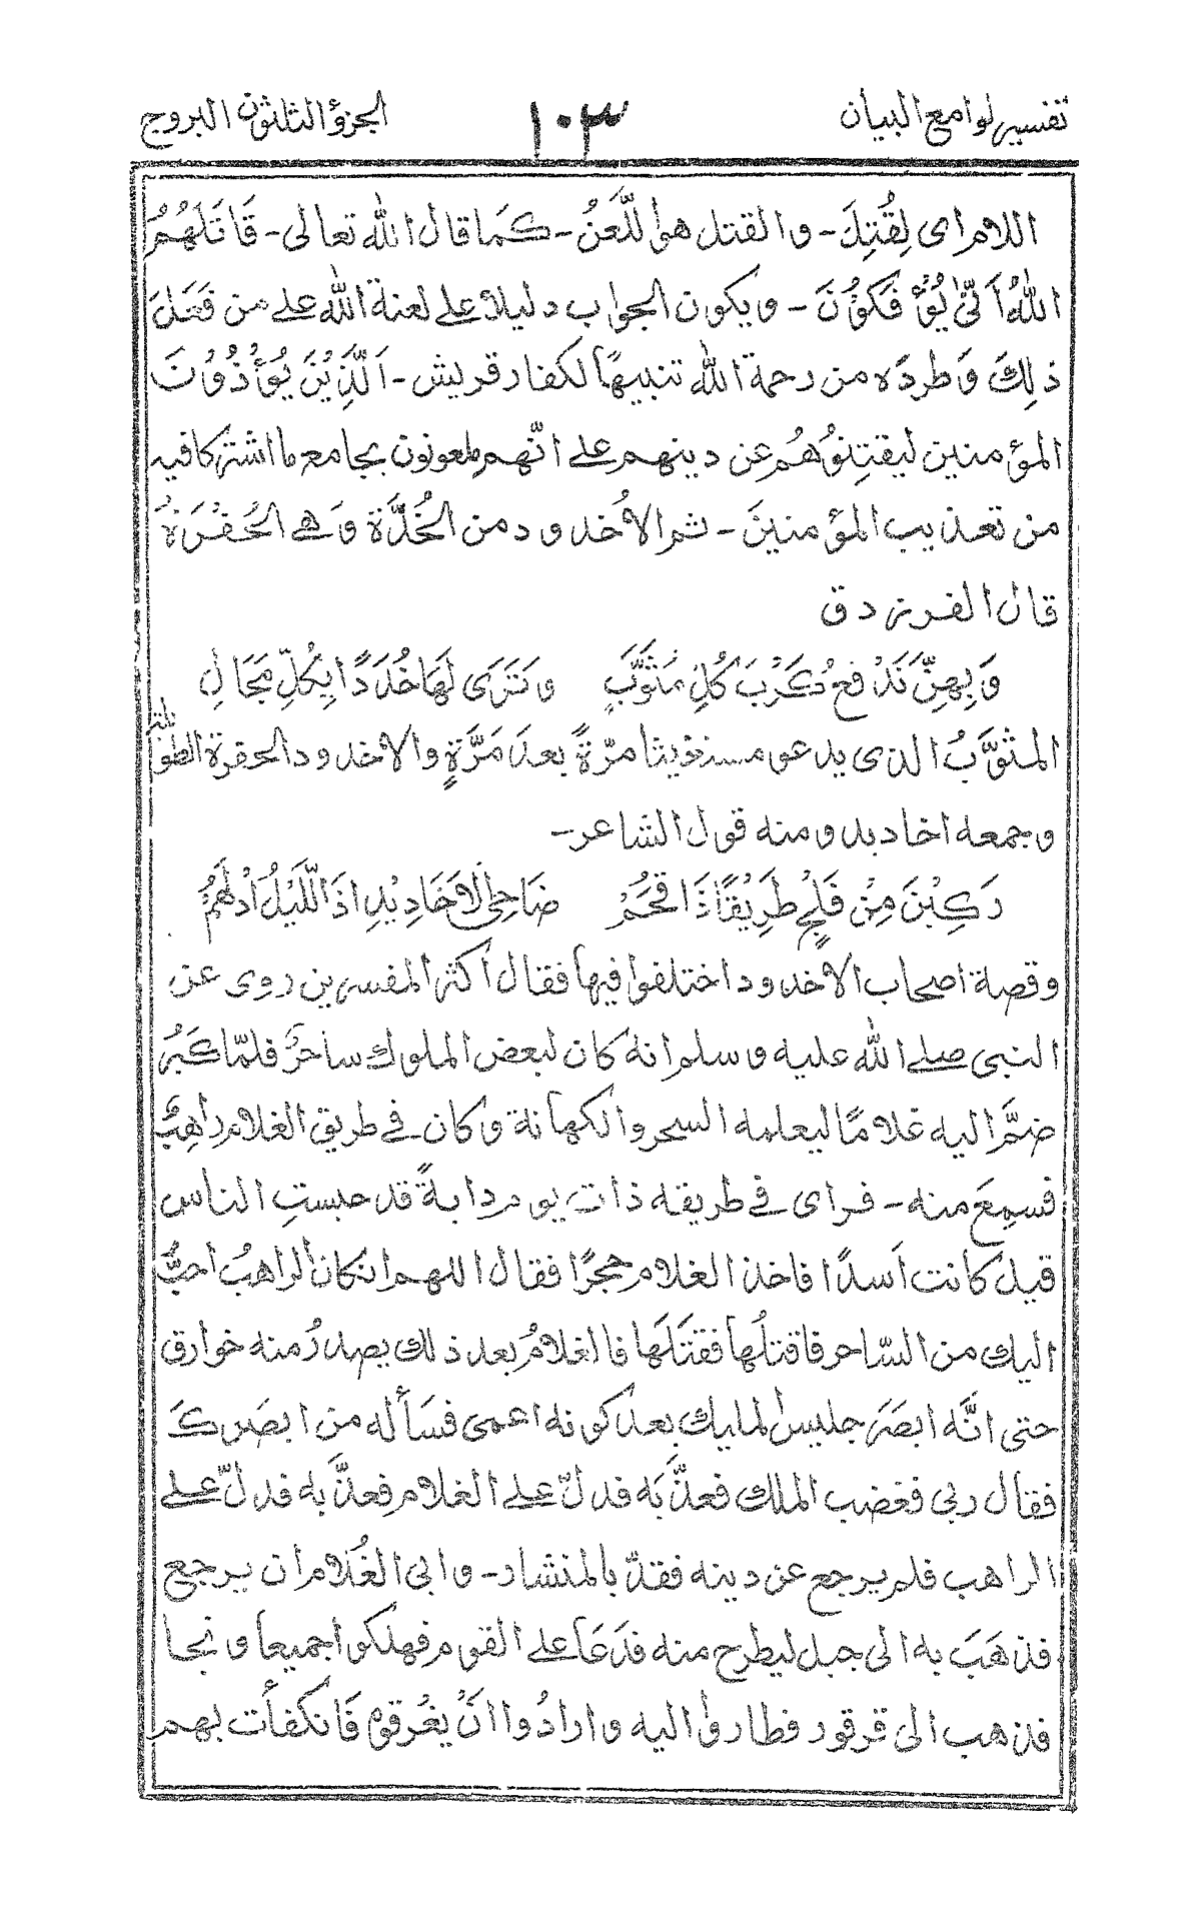 تفسير لوامع البيان ١٠٣ الجزؤ الثلثون البروج
اللام اى لِقُتِلَ - والقتل هو اللَّعَنُ - كَمَا قال الله تعالى - قَاتَلَهُمُ
اللهُ اَنّٰى يُؤْفَكُوْنَ - ويكون الجواب دليلا على لعنة الله على من فَعَلَ
ذٰلِكَ وَطرده من رحمة الله تنبيهًا لكفار قريش - اَلَّذِيْنَ يُؤْذُوْنَ
المؤمنين ليفتِنُوْهُم عن دينهم على انّهم ملعونون بجامع ما اشتركا فيه
من تعذيب المؤمنينَ - ثم الاُخدود من الخُدَّة وَهى الحُفْرَةُ
قال الفرزدق
وَبِهِنَّ نَدْفعُ كَرْبَ كُلِّ مُثَوِّبٍ وَتَرَى لَهَا خُدَدًا بِكُلِّ مَجَالِ
المثوِّبُ الذى يدعو مستغيثا مرّةً بعدَ مَرَّةٍ والاخدود الحفرة الطويلة
وجمعه اخاديد ومنه قول الشاعر -
رَكِبْنَ مِنْ فَلْجٍ طَرِيْقًا ذَا قُحَمْ ضَاحِى الاَخَادِيْدِ اِذَا اللَّيْلُ ادْلَهَمّْ
وقصة اصحاب الاخدود اختلفوا فيها فقال اكثر المفسرين روى عن
النبى صلى الله عليه وسلم انه كان لبعض الملوك ساحرٌ فلمّا كَبُرَ
ضمَّ اليه غلامًا ليعلمه السحر والكهانة وكان فى طريق الغلام راهِبٌ
فسمِعَ منه - فراى فى طريقه ذات يوم دابةً قد حبستِ الناس
قيل كانت اَسدًا فاخذ الغلام حجرًا فقال اللهم ان كان الراهبُ احبَّ
اليك من السّاحر فاقتلْها فقتَلَها فالغلامُ بعد ذلك يصدرُ منه خوارق
حتى انّه ابصَرَ جليس الملِك بعد كونه اعمى فسَأله من ابصَرك
فقال ربى فغضب الملك فعذَّبَه فدلّ على الغلام فعذّبه فدلّ على
الراهب فلم يرجع عن دينه فقدّ بالمنشار - وابى الغُلام ان يرجع
فذهَبَ به الى جبل ليطرح منه فدَعَا على القوم فهلكوا جميعا ونجا
فذهب الى قرقور فطاروا اليه وارادُوا انْ يغْرقوه فَانكفأت بهم